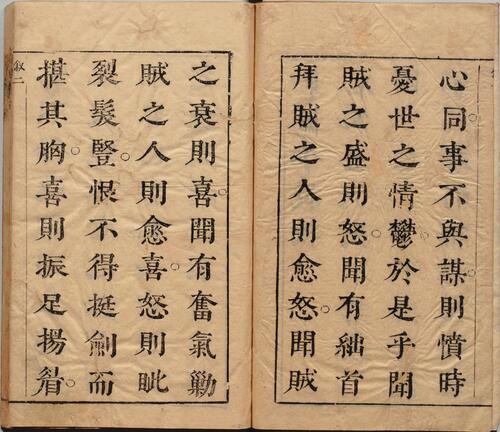 心同事不與謀則憤時
憂世之情鬱於是乎聞
賊之盛則怒聞有紬首
拜賊之人則愈怒聞賊
之衰則喜聞有奮氣勦
賊之人則愈喜怒則眦
裂髮豎恨不得挺劍而
揕其胸喜則振足揚眉
敘二